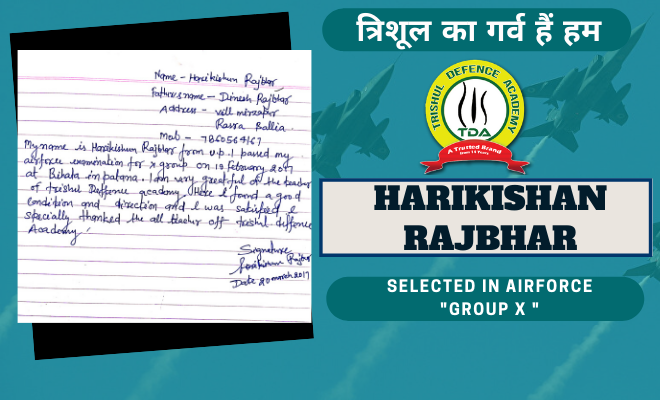 Name - Harikishun Rajbhar
Fathers name - Dinesh Rajbhar
Address - vill mirzapur
Rasra Ballia
Mob - 7860564167
My name is Harikishun Rajbhar from u.p. I passed my
airforce examination for x group on 10 february 2017
at Bihata in patana. I am very greatful of the teacher
of trishul Deffence academy. Here I found a good
condition and direction and I was satisfied I
specially thanked the all teacher off trishul deffence
Academy.
Signature
Harikishun Rajbhar
Date 20 march 2017
त्रिशूल का गर्व हैं हम
TRISHUL DEFENCE ACADEMY
TDA
A Trusted Brand
HARIKISHAN
RAJBHAR
SELECTED IN AIRFORCE
"GROUP X "